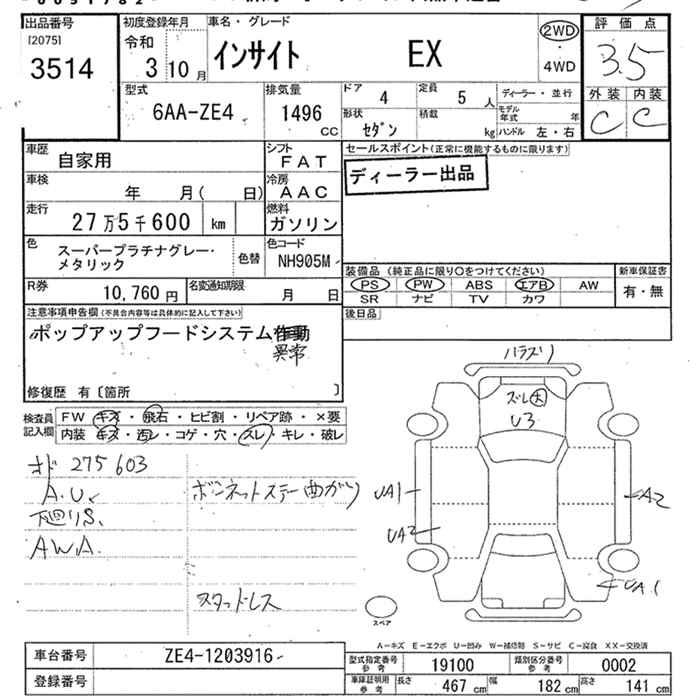 出品番号
[2075]
3514
初度登録年月
令和
3 10 月
車名・グレード
インサイト EX
2WD
・
4WD
評価点
3.5
外装 内装
C C
型式
6AA-ZE4
排気量
1496 CC
ドア 4
定員 5 人
ディーラー・並行
形状 セダン
積載 kg
モデル年式 年
ハンドル 左・右
車歴 自家用
シフト FAT
セールスポイント(正常に機能するものに限ります)
ディーラー出品
車検 年 月( 日)
冷房 AAC
走行 27万5千600 km
燃料 ガソリン
色 スーパープラチナグレー・メタリック
色替
色コード NH905M
装備品(純正品に限り○をつけてください)
新車保証書
PS PW ABS エアB AW
有・無
SR ナビ TV カワ
R券 10,760 円
名変通知期限 月 日
後日品
注意事項申告欄(不具合内容等は具体的に記入して下さい)
ポップアップフードシステム作動
異常
修復歴 有〔箇所 〕
検査員記入欄
FW キズ・飛石・ヒビ割・リペア跡・×要
内装 キズ・汚レ・コゲ・穴・スレ・キレ・破レ
オド 275603
A.U.
下廻りS.
AWA.
ボンネットステー曲がり
スタッドレス
バラズリ
ズレ大
U3
UA1
UA2
A2
UA1
スペア
A－キズ E－エクボ U－凹み W－補修跡 S－サビ C－腐食 XX－交換済
車台番号 ZE4-1203916
登録番号
型式指定番号参考 19100
類別区分番号参考 0002
車庫証明用参考
長さ 467 cm
幅 182 cm
高さ 141 cm